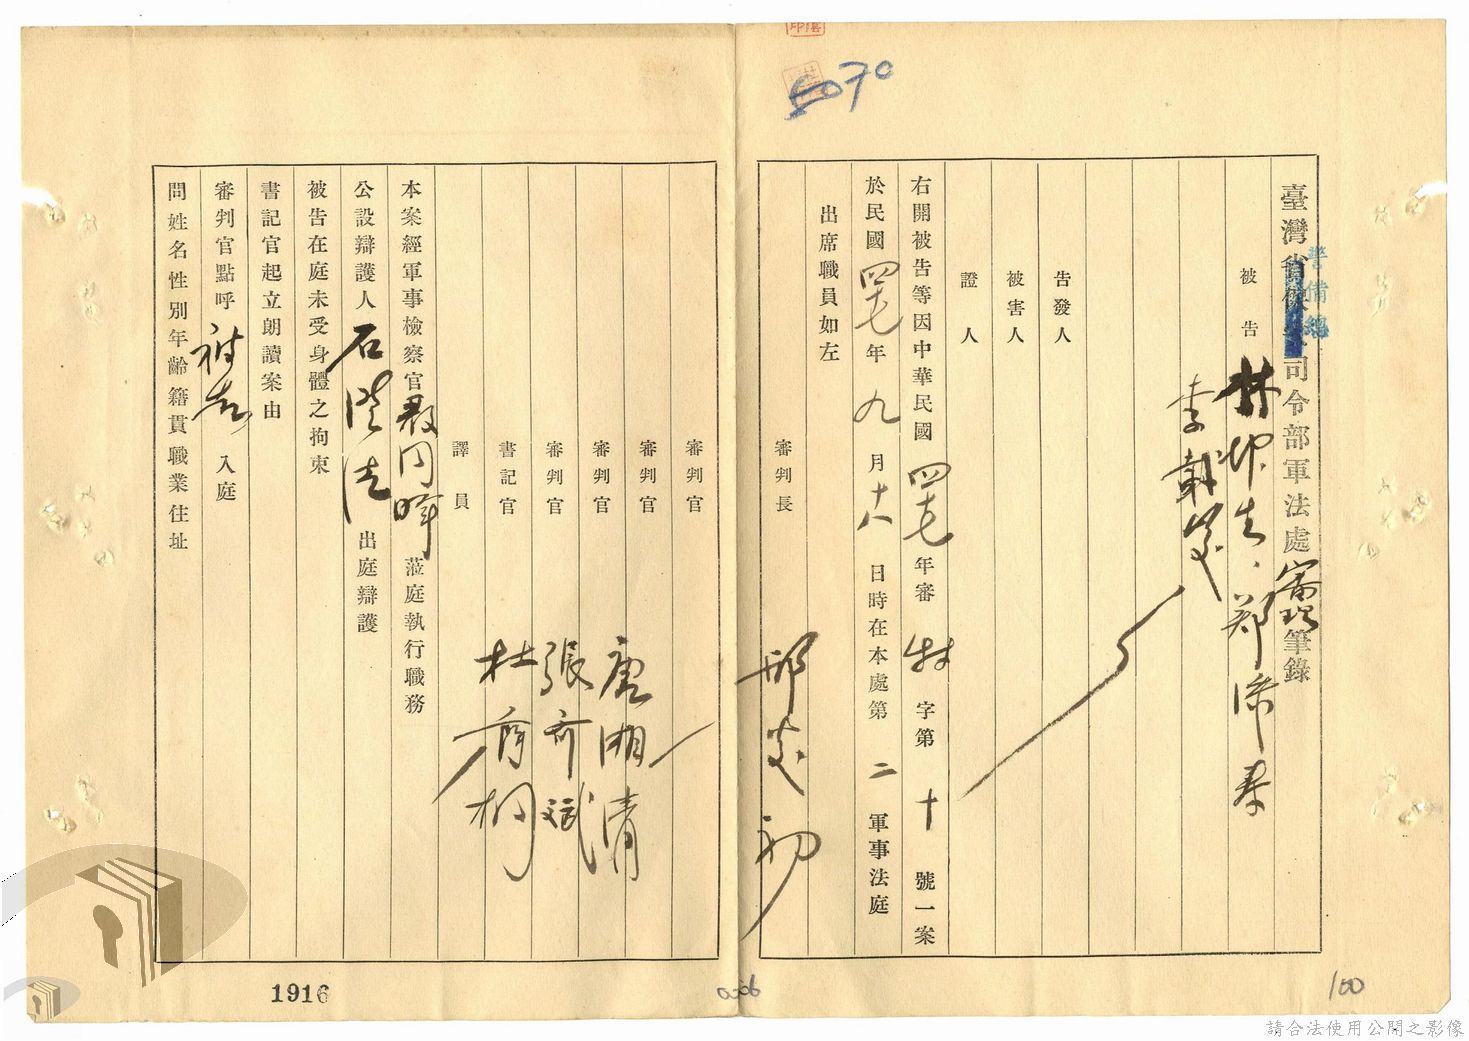 臺灣警備總司令部軍法處審理筆錄
被告 林 鄭
李
告發人
被害人
證人
右開被告等因中華民國四七年審 字第十號一案
於民國四七年九月十八日時在本處第二軍事法庭
出席職員如左
審判長 邢炎初
審判官
審判官 唐湘清
審判官 張齊斌
審判官
書記官 杜 桐
譯員
本案經軍事檢察官殷同暐蒞庭執行職務
公設辯護人石 出庭辯護
被告在庭未受身體之拘束
書記官起立朗讀案由
審判官點呼被告入庭
問姓名性別年齡籍貫職業住址
070
1916
0006
100
請合法使用公開之影像